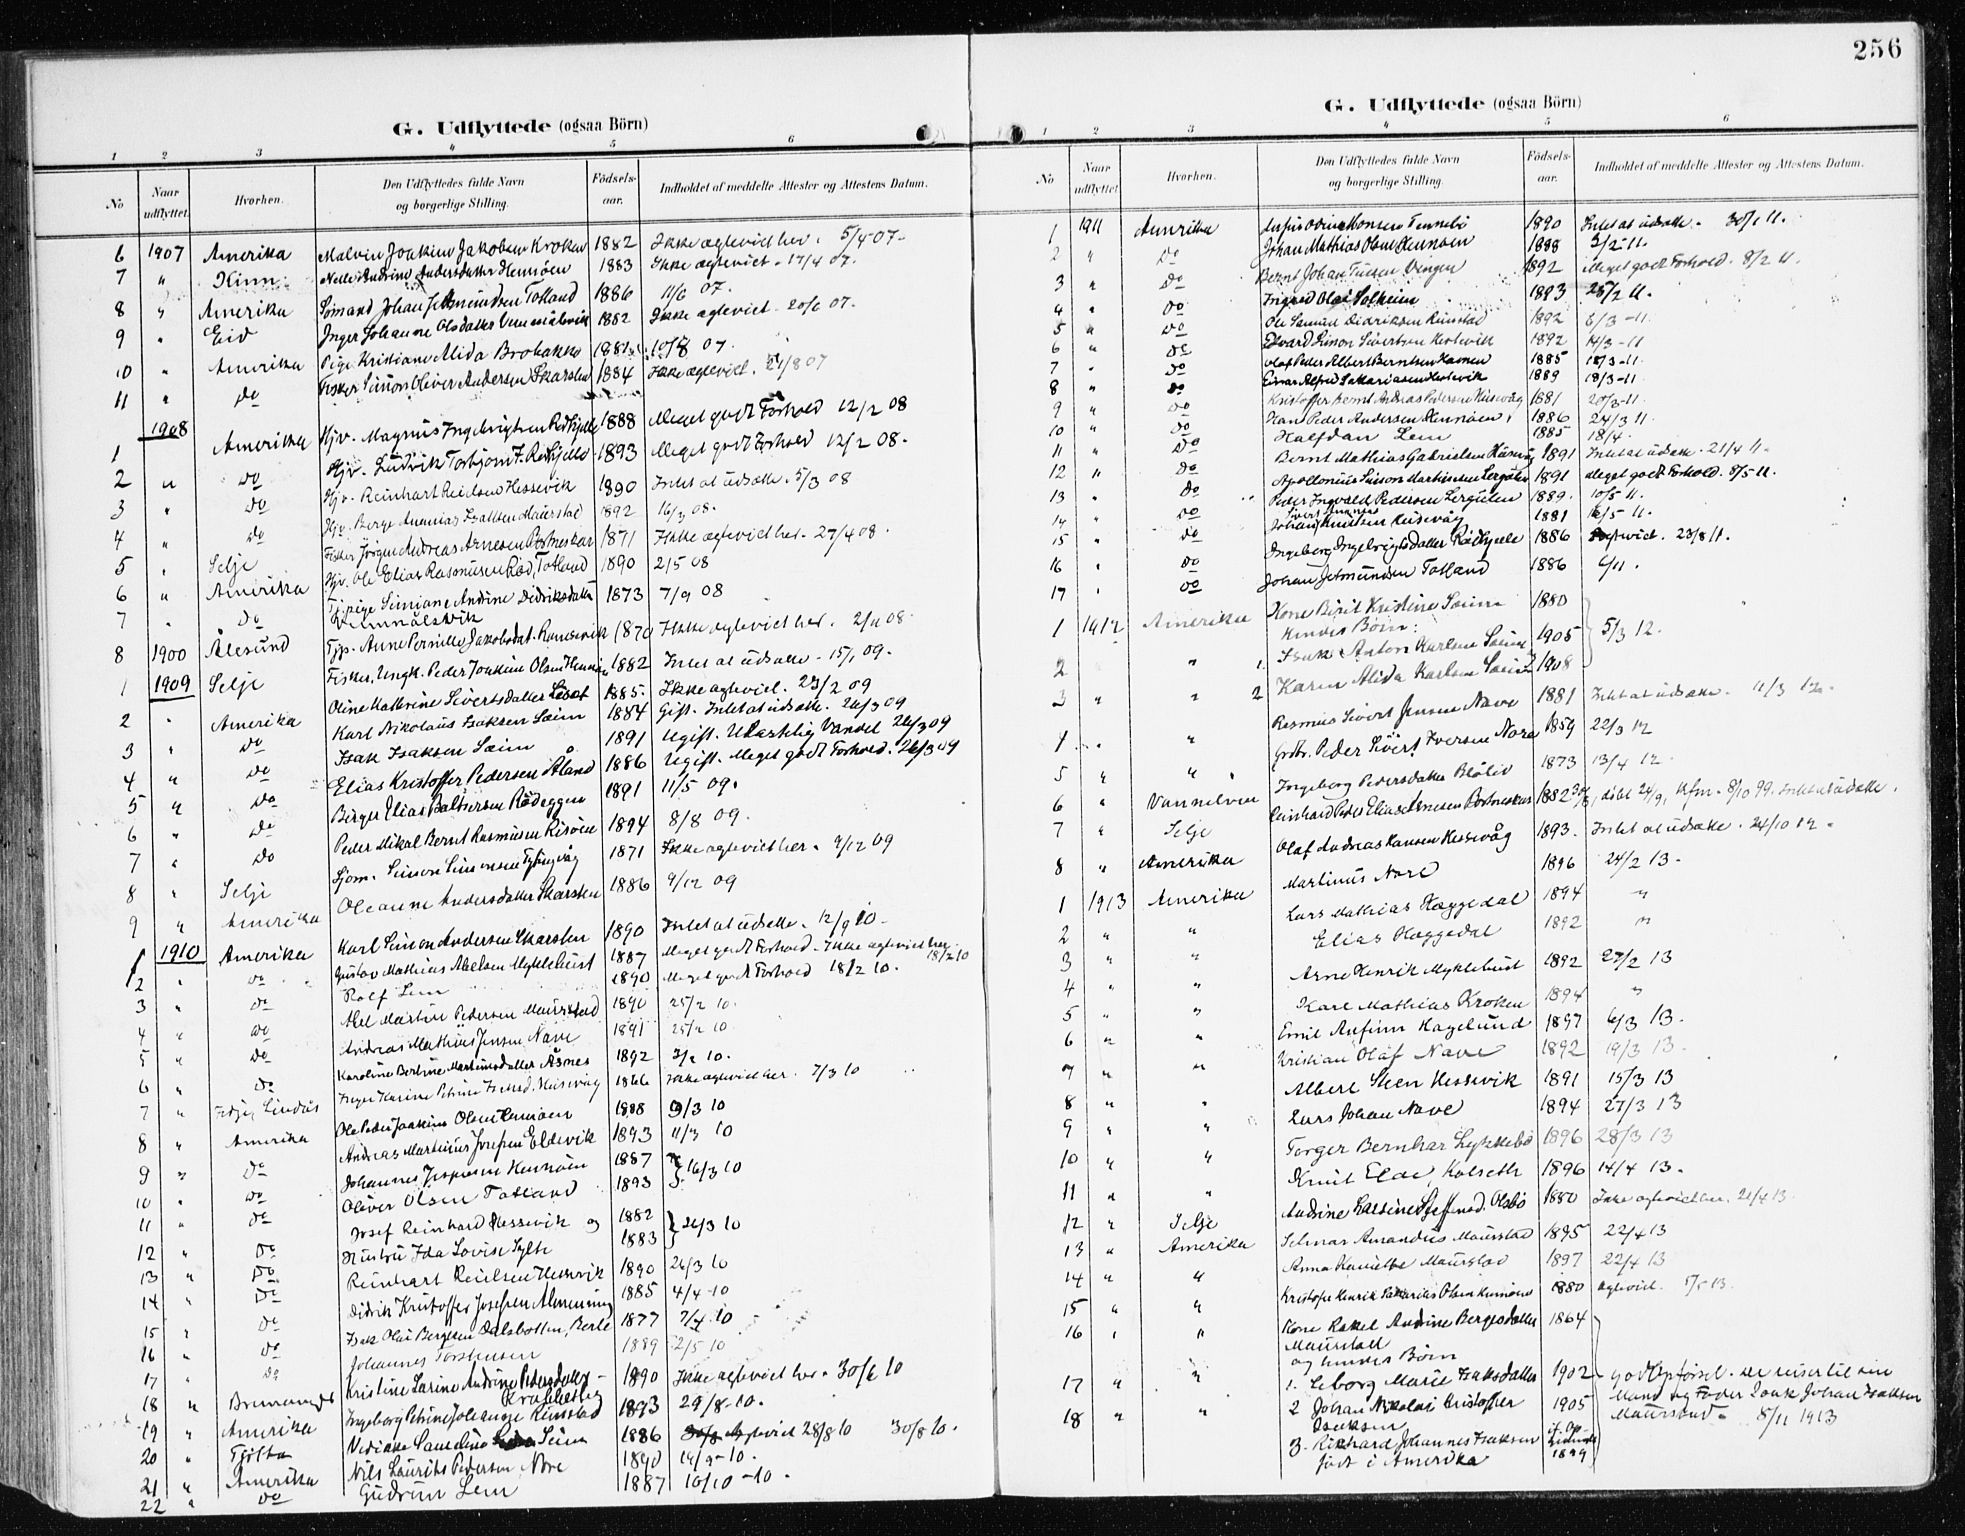 256
G. Udflyttede (ogsaa Börn)
1 2 3 4 5 6
No Naar udflyttet. Hvorhen. Den Udflyttedes fulde Navn og borgerlige Stilling. Födsels-aar. Indholdet af meddelte Attester og Attestens Datum.
6 1907 Amerika Malvin Joakim Jakobsen Kroken 1882 Ikke agteviet her. 5/4 07.
7 " Kinn Andersdatter Hennöen 1883 Ikke agteviet. 17/4 07.
8 " Amerika Johan Totland 1886 11/6 07.
9 " Eid Inger Johanne Olsdatter 1882 Ikke agteviet. 20/6 07.
10 " Amerika Pige Kristiane Alida Brobakke 1881 10/8 07.
11 " Do Fisker Simon Oliver Andersen Skarsten 1884 Ikke agteviet. 21/8 07
1908
1 Amerika Hjv. Magnus Ingebrigtsen 1888 Meget godt Forhold 12/2 08
2 " Do Hjv. Ludvik Torbjörn 1893 Meget godt Forhold 12/2 08.
3 " Do Hjv. Reinhart Reielsen Hessevik 1890 Intet at udsætte. 5/3 08
4 " Do Hjv. Berge Ananias Isaksen Maurstad 1892 16/3 08.
5 " Selje Fisker Jörgen Andreas Arnesen 1871 Ikke agteviet her. 27/4 08.
6 " Amerika Hjv. Ole Elias Rasmusen Totland 1890 2/5 08
7 " Do Simiane Andrine Didriksdatter 1873 7/9 08
8 1900 Ålesund Anne Pernille Jakobsdat. 1870 Ikke agteviet her. 2/11 08.
1 1909 Selje Fisker, Ungk. Peder Joakim Olsen 1882 Intet at udsætte. 15/1 09.
2 " Amerika Oline Kathrine Sivertsdatter 1885. Ikke agteviet. 23/2 09
3 " Do Karl Nikolaus Isaksen Seim 1884 Gift. Intet at udsætte. 26/3 09
4 " Do Isak Isaksen Seim 1891 Ugift. Ulastelig Vandel 26/3 09
5 " Do Elias Kristoffer Pedersen Åland 1886 Ugift. Meget godt Forhold. 26/3 09
6 " Do Birger Elias Baltsersen Rödeggen 1891 11/5 09.
7 " Do Peder Mikal Bernt Rasmusen Risöen 1894 8/8 09.
8 " Selje Simon Simonsen 1871 Ikke agteviet her. 9/12 09
9 " Amerika Oleanne Andersdatter Skarsten 1886 9/12 09
1 1910 Amerika Karl Simon Andersen Skarsten 1890 Intet at udsætte. 12/9 10.
2 " Do Gustav Mathias Abelsen Myklebust 1887 Meget godt Forhold. Ikke agteviet her. 18/2 10
3 " Do Rolf Lem 1890 Meget godt Forhold 18/2 10.
4 " Do Abel Martin Pedersen Maurstad 1890 25/2 10.
5 " Do Andreas Mathias Jensen Nave 1891 25/2 10.
6 " Do Karoline Bertine Martinusdatter Åsnes 1892 3/2 10.
7 " Lindås Inger Karine Petrine Husevåg 1866 Ikke agteviet her. 7/3 10
8 " Amerika Ole Peder Joakim Olsen Hennöen 1888 9/3 10
9 " Do Andreas Martinus Josefsen Eldevik 1893 11/3 10
10 " Do Johannes Jespersen Hennöen 1887 } 16/3 10
11 " Do Oliver Olsen Totland 1893
12 " Do Josef Reinhard Hessevik og 1882 } 26/3 10
13 " Do Hustru Ida Lovise Sylte 1883
14 " Do Reinhart Reielsen Hessevik 1890 26/3 10
15 " Do Didrik Kristoffer Josefsen Almenning 1885 4/4-10
16 " Do Isak Olai Bergesen Dalsbotten, Berle 1877 7/4 10
17 " Do Johannes Torstensen 1889 2/5 10
18 " Bremanger Kristine Larine Andrine Pedersdatter 1890 Ikke agteviet her. 30/6 10
19 " Amerika Ingeborg Petrine Rimstad 1893 29/8-10.
20 " Tjötta Seim 1886 Agteviet 28/8 10 30/8 10.
21 " Amerika Nils Laurits Pedersen Nore 1890 14/9-10.
22 " Do Gudrun Lem 1887 10/10-10.
G. Udflyttede (ogsaa Börn)
1 2 3 4 5 6
No Naar udflyttet Hvorhen. Den Udflyttedes fulde Navn og borgerlige Stilling. Födsels-aar. Indholdet af meddelte Attester og Attestens Datum.
1 1911 Amerika Monsen 1890 Intet at udsætte. 30/1 11.
2 " Do Johan Mathias Olsen Hennöen 1888 3/2-11.
3 " Do Bernt Johan Vingen 1892 Meget godt Forhold. 8/2 11.
4 " Do Ingvald Olai Solheim 1893 25/2 11.
5 " Do Ole Samuel Didriksen Rimstad 1892 6/3-11.
6 " Do Edvard Simon Sivertsen 1892 14/3-11
7 " Do Olaf Peder Albert Berntsen 1885 18/3-11.
8 " Do Einar Alfred Sakariasen 1889 18/3-11.
9 " Do Kristoffer Bernt Andreas Pedersen Husevåg 1881 20/3-11.
10 " Do Hans Peder Andersen Hennöen 1886 24/3 11.
11 " Do Halfdan Lem 1885 18/4.
12 " Do Bernt Mathias Gabrielsen Husevåg 1891 Intet at udsætte. 21/4 11.
13 " Do Apollonius Simon Martinsen Lergulen 1891 Meget godt Forhold. 8/5 11.
14 " Do Peder Ingvald Pedersen Lergulen 1889. 10/5 11.
15 " Do Johan Knutsen Husevåg 1881 16/5-11.
16 " Do Ingeborg Ingebrigtsdatter 1886 Agteviet. 23/8 11.
17 " Do Johan Jetmundsen Totland 1886 /11.
1 1912 Amerika Kone Birit Kristine Seim 1880 } 5/3 12.
hendes Börn:
2 " 1. Isak Anton Karlsen Seim 1905
3 " " 2 Karen Alida Karlsen Seim 1908
4 " " Rasmus Sivert Jensen Nave 1881 Intet at udsætte. 11/3 12.
5 " " Peder Sivert Iversen Nore 1859 22/3 12
6 " Vannelven Ingeborg Pedersdatter 1873 13/4 12.
7 " Selje Reinhard Peder Elias Arnesen 1882 döbt 24/9, kfm. 8/10 99. Intet at udsætte.
8 " Amerika Olaf Andreas Hansen Hessevåg 1893. Intet at udsætte. 24/10 12.
1 1913 Amerika Martinus Nore 1896 24/2 13.
2 " " Lars Mathias Hæggedal 1894 "
3 " " Elias Hæggedal 1892 "
4 " " Arne Henrik Myklebust 1892 27/2 13
5 " " Karl Mathias Kroken 1894 "
6 " " Emil Anfinn Hagelund 1897 6/3 13.
7 " " Kristian Olaf Nave 1892 19/3 13.
8 " " Albert Steen Hessevik 1891 15/3 13
9 " " Lars Johan Nave 1894 27/3 13
10 " " Torger Bernhar Lykkebö 1896 28/3 13
11 " " Knut Elde, Kolseth 1896 14/4 13.
12 " Selje Andrine Olsbö 1880 Ikke agteviet her. 21/4 13.
13 " Amerika Selmar Amandus Maurstad 1895 22/4 13
14 " " Anna Maurstad 1897 22/4 13
15 " " Kristofer Henrik Sakarias Olsen Hennöen 1880 Agteviet. 5/5 13.
16 " " Kone Rakel Andrine Bergesdatter Maurstad 1864
og hendes Börn
17 " " 1. Seborg Marie Isaksdatter 1902 godt Opförsel. De reiser til sin
18 " " 2 Johan Nikolai Kristoffer Isaksen 1905 Mand og Fader Isak Johan Isaksen Maurstad. 8/11 1913
3. Rikhard Johannes Isaksen
født i Amerika 1899